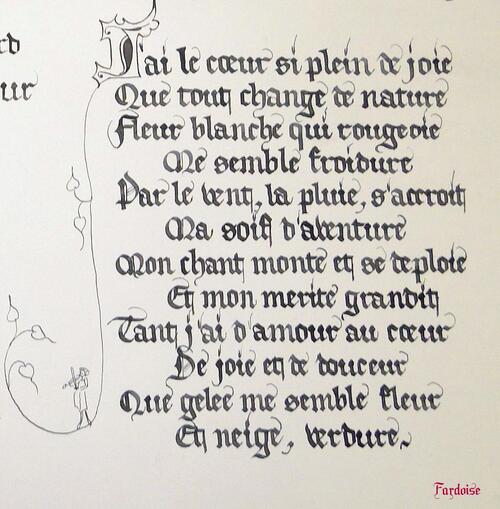 rd
ur
J'ai le cœur si plein de joie
Que tout change de nature
Fleur blanche qui rougeoie
Me semble froidure
Par le vent, la pluie, s'accroit
Ma soif d'aventure
Mon chant monte et se deploie
Et mon merite grandit
Tant j'ai d'amour au cœur
De joie et de douceur
Que gelee me semble fleur
Et neige, verdure.
Fardoise